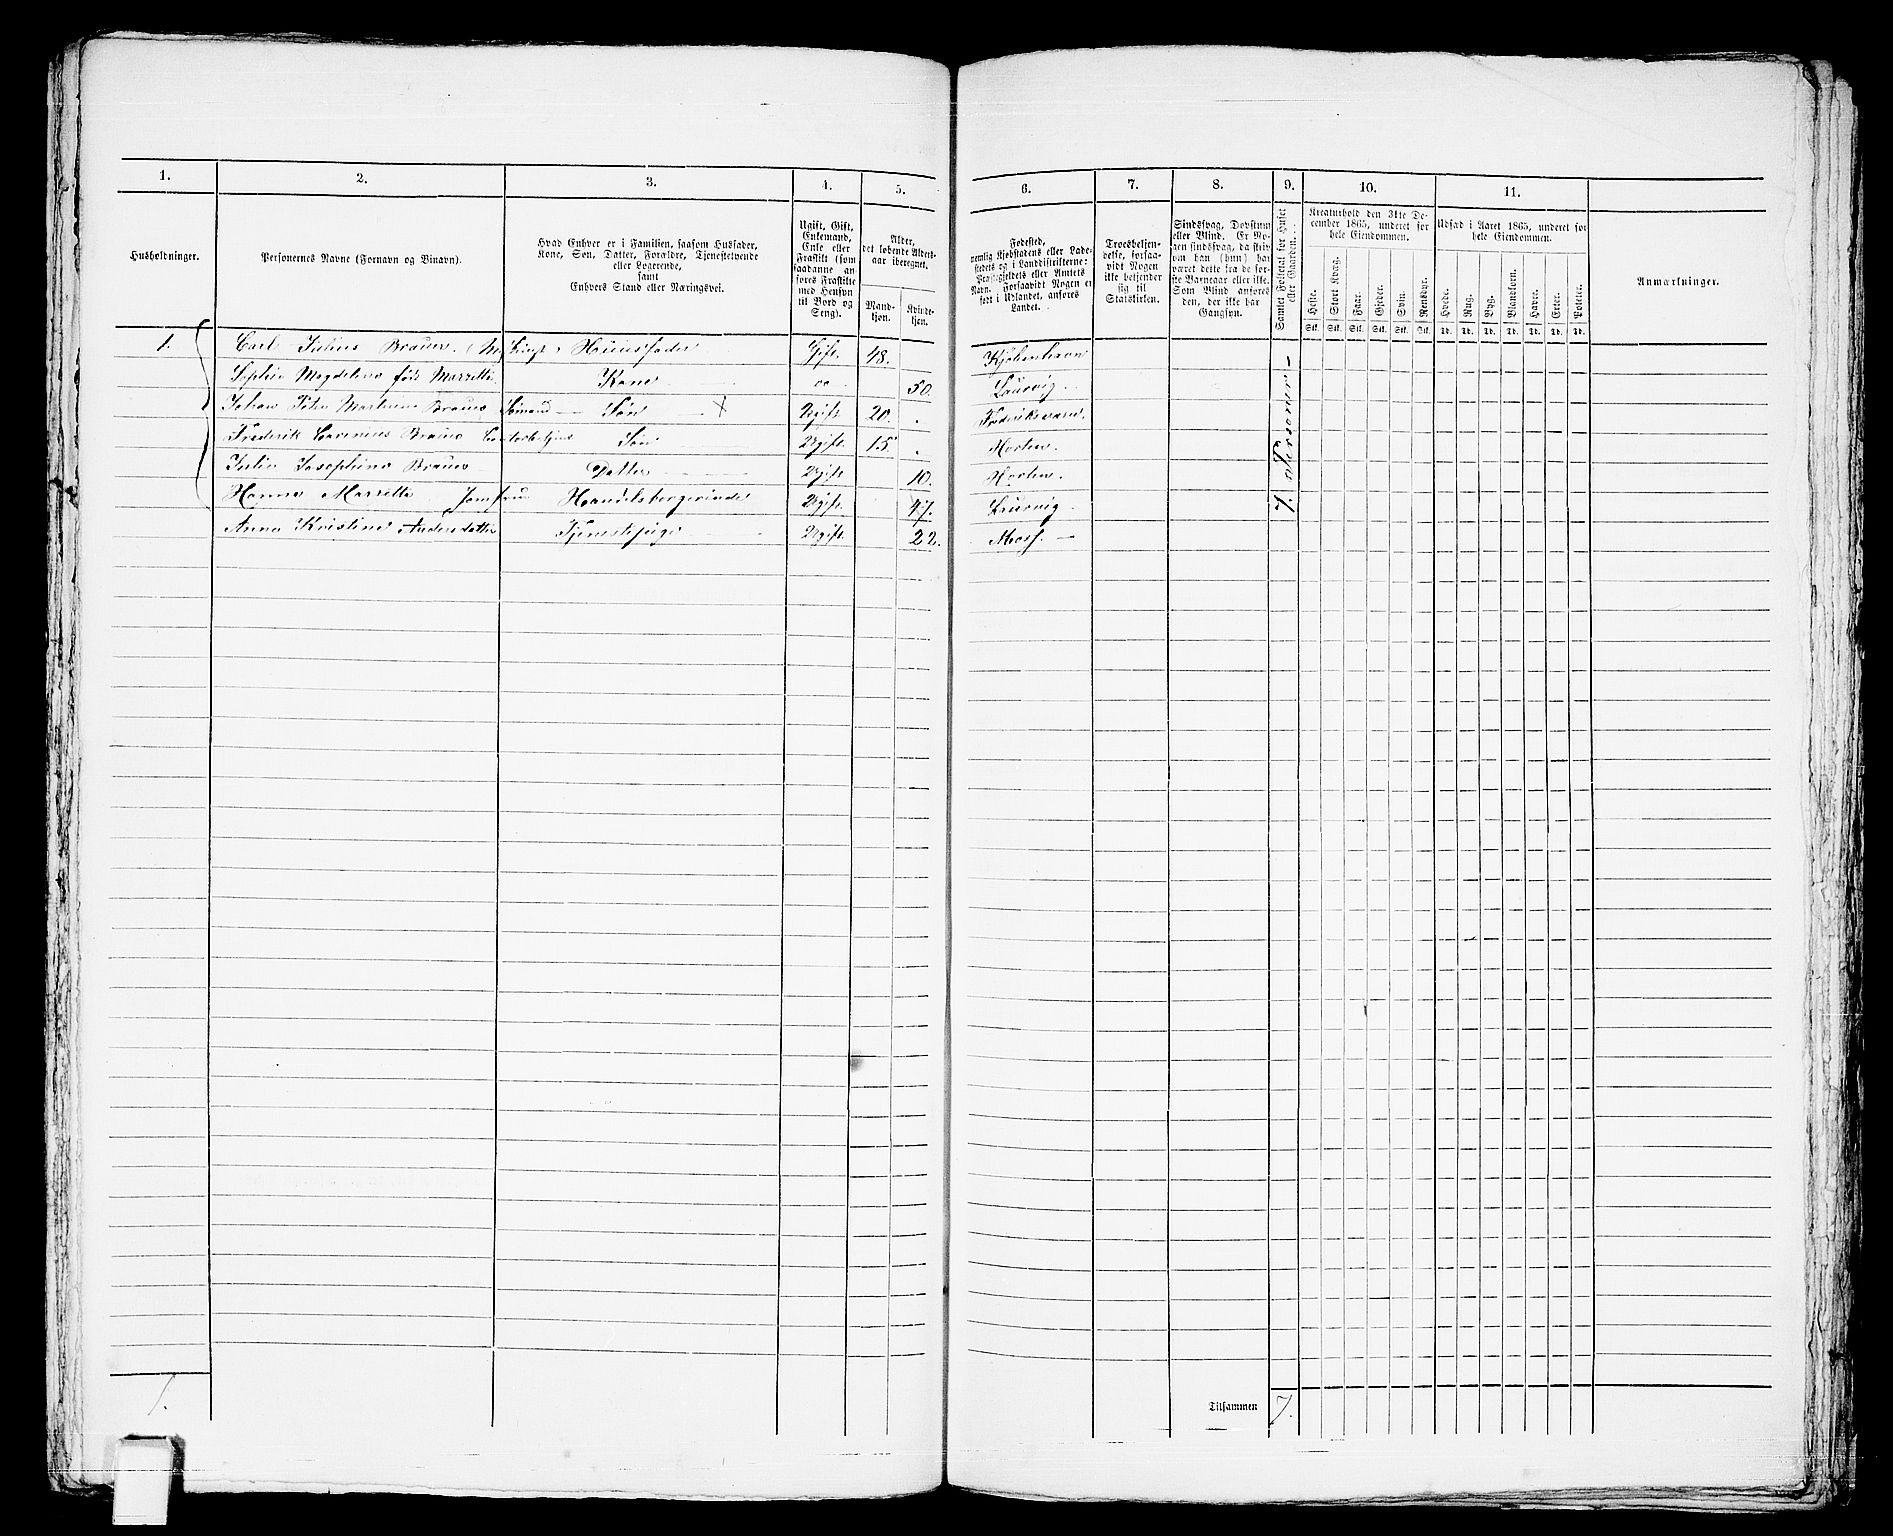 1. 2. 3. 4. 5. 6. 7. 8. 9. 10. 11.
Husholdninger.
Personernes Navne (Fornavn og Binavn).
Hvad Enhver er i Familien, saasom Husfader,
Kone, Søn, Datter, Forældre, Tjenestetyende
eller Logerende,
samt
Enhvers Stand eller Næringsvei.
Ugift, Gift,
Enkemand,
Enke eller
Fraskilt (som
saadanne an-
føres Fraskilte
med Hensyn
til Bord og
Seng).
Alder,
det løbende Alders-
aar iberegnet.
Mand-
kjøn.
Kvinde-
kjøn.
Fødested,
nemlig Kjøbstadens eller Lade-
stedets og i Landdistrikterne:
Præstegjeldets eller Amtets
Navn. Forsaavidt Nogen er
født i Udlandet, anføres
Landet.
Troesbekjen-
delse, forsaa-
vidt Nogen
ikke bekjender
sig til
Statskirken.
Sindssvag, Døvstum
eller Blind. Er No-
gen sindssvag, da skriv
om han (hun) har
været dette fra de før-
ste Barneaar eller ikke.
Som Blind anføres
den, der ikke har
Gangsyn.
Samlet Folketal for Huset
eller Gaarden.
Kreaturhold den 31te De-
cember 1865, underet for
hele Eiendommen.
Heste. Stort Kvæg. Faar. Gjeder. Svin. Rensdyr.
Stk. Stk. Stk. Stk. Stk. Stk.
Udsæd i Aaret 1865, underet for
hele Eiendommen.
Hvede. Rug. Byg. Blandkorn. Havre. Erter. Poteter.
Td. Td. Td. Td. Td. Td. Td.
Anmærkninger.
1. Carl Julius Brauer Huusfader Gift. 48. Kjøbenhavn
Sophie Magdelena født Marzette Kone do 50. Laurvig.
Johan Peter Brauer Sømand Søn X Ugift 20. Frederiksværn.
Frederik Brauer Søn Ugift. 15. Horten.
Julie Josephine Brauer Datter Ugift 10. Horten.
Hanna Marzette Jomfru Handelsborgerinde Ugift. 47. Laurvig
Anna Kristine Andersdatter Tjenestepige Ugift. 22. Moss.
7. Personer
1.
Tilsammen 7.